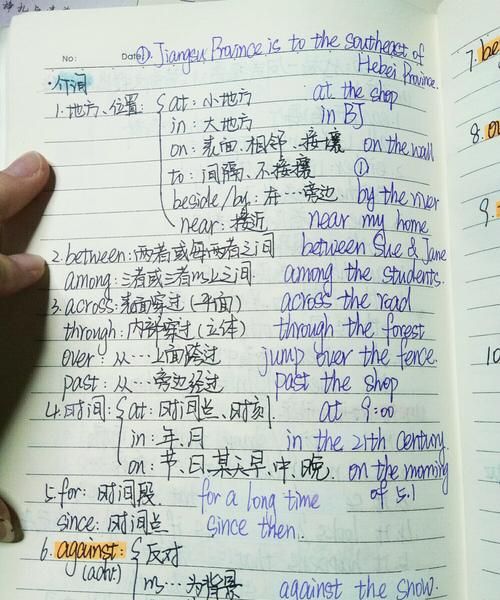 No: Date ①. Jiangsu Province is to the southeast of
Hebei Province.
介词
1. 地方、位置: at: 小地方 at the shop
in: 大地方 in BJ
on: 表面、相邻、接壤 on the wall
to: 间隔、不接壤 ①
beside/by: 在…旁边 by the river
near: 接近 near my home
2. between: 两者或每两者之间 between Sue & Jane
among: 三者或三者以上之间 among the students.
3. across: 表面穿过(平面) across the road
through: 内部穿过(立体) through the forest
over: 从…上面跨过 jump over the fence.
past: 从…旁边经过 past the shop
4. 时间: at: 时间点、时刻 at 9:00
in: 年、月 in the 21th century.
on: 节、日、某天早、中、晚. on the morning
of 5.1
5. for: 时间段 for a long time
since: 时间点 since then.
6. against: 反对
以…为背景 against the snow.
7. be
8.
9.
10